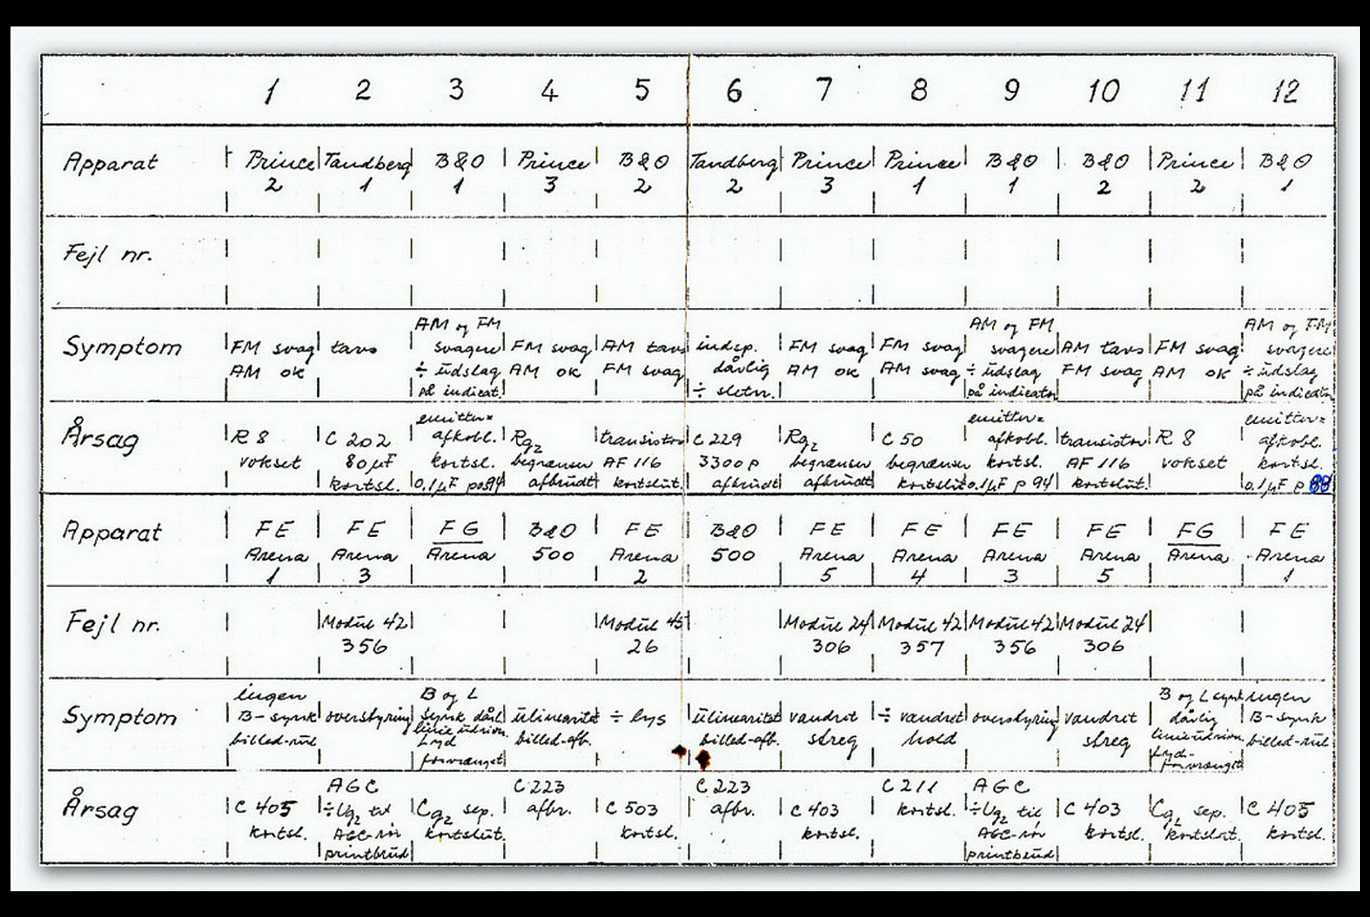 1 2 3 4 5 6 7 8 9 10 11 12
Apparat Prince Tandberg B&O Prince B&O Tandberg Prince Prince B&O B&O Prince B&O
2 1 1 3 2 2 3 1 1 2 2 1
Fejl nr.
AM og FM AM og FM AM og FM
Symptom FM svag tavs svagere FM svag AM tavs indsp. FM svag FM svag svagere AM tavs FM svag svagere
AM ok ÷ udslag AM ok FM svag dårlig AM ok AM svag ÷ udslag FM svag AM ok ÷ udslag
på indicat. ÷ sletn. på indicator på indicator
emitter= emitter= emitter=
Årsag R 8 C 202 afkobl. Rg2 transistor C 229 Rg2 C 50 afkobl. transistor R 8 afkobl.
vokset 80 µF kortsl. begrænser AF 116 3300 p begrænser begrænser kortsl. AF 116 vokset kortsl.
kortsl. 0,1µF p94 afbrudt kortslut. afbrudt afbrudt kortslut 0.1µF p 94 kortslut. 0.1µF p 88
Apparat FE FE FG B&O FE B&O FE FE FE FE FG FE
Arena Arena Arena 500 Arena 500 Arena Arena Arena Arena Arena Arena
1 3 2 5 4 3 5 1
Fejl nr. Modul 42 Modul 45 Modul 24 Modul 42 Modul 42 Modul 24
356 26 306 357 356 306
ingen B og L B og L synk ingen
Symptom B-synk overstyring synk dårl. ulinearitet ÷ lys ulinearitet vandret ÷ vandret overstyring vandret dårlig B-synk
billed-rul linie udsving billed-afb. billed-afb. streg hold streg linie udsving billed-rul
Lyd Lyd-
forvrænget forvrænget
AGC C 223 C 223 C 211 AGC
Årsag C 405 ÷Ug2 til Cg2 sep. afbr. C 503 afbr. C 403 kortsl. ÷Ug2 til C 403 Cg2 sep. C 405
kortsl. AGC-rør kortslut. kortsl. kortsl. AGC-rør kortsl. kortslut. kortsl.
printbrud printbrud